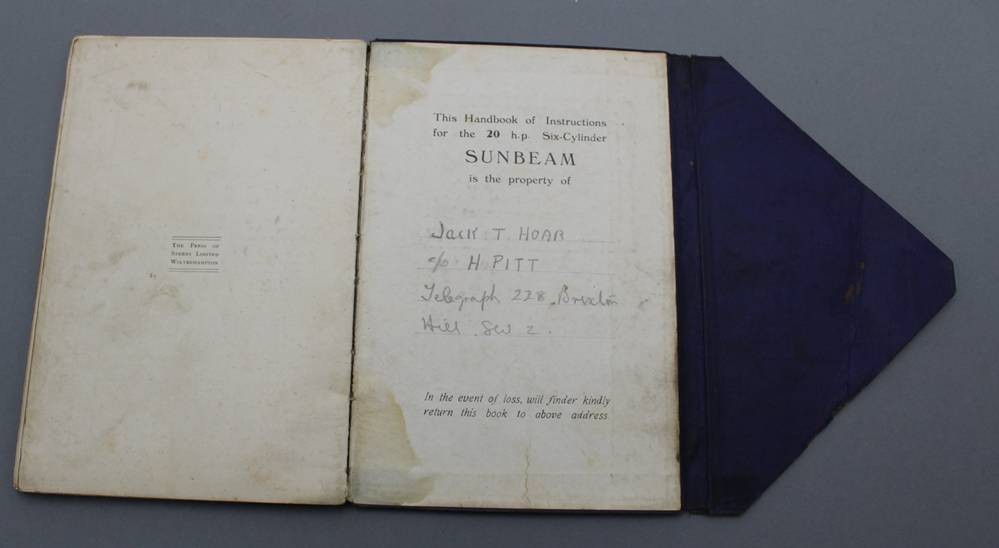 THE PRESS OF
STEENS LIMITED
WOLVERHAMPTON
This Handbook of Instructions
for the 20 h.p. Six-Cylinder
SUNBEAM
is the property of
Jack T. HOAR
c/o H PITT
Telegraph 228. Brixton
Hill. SW 2.
In the event of loss, will finder kindly
return this book to above address